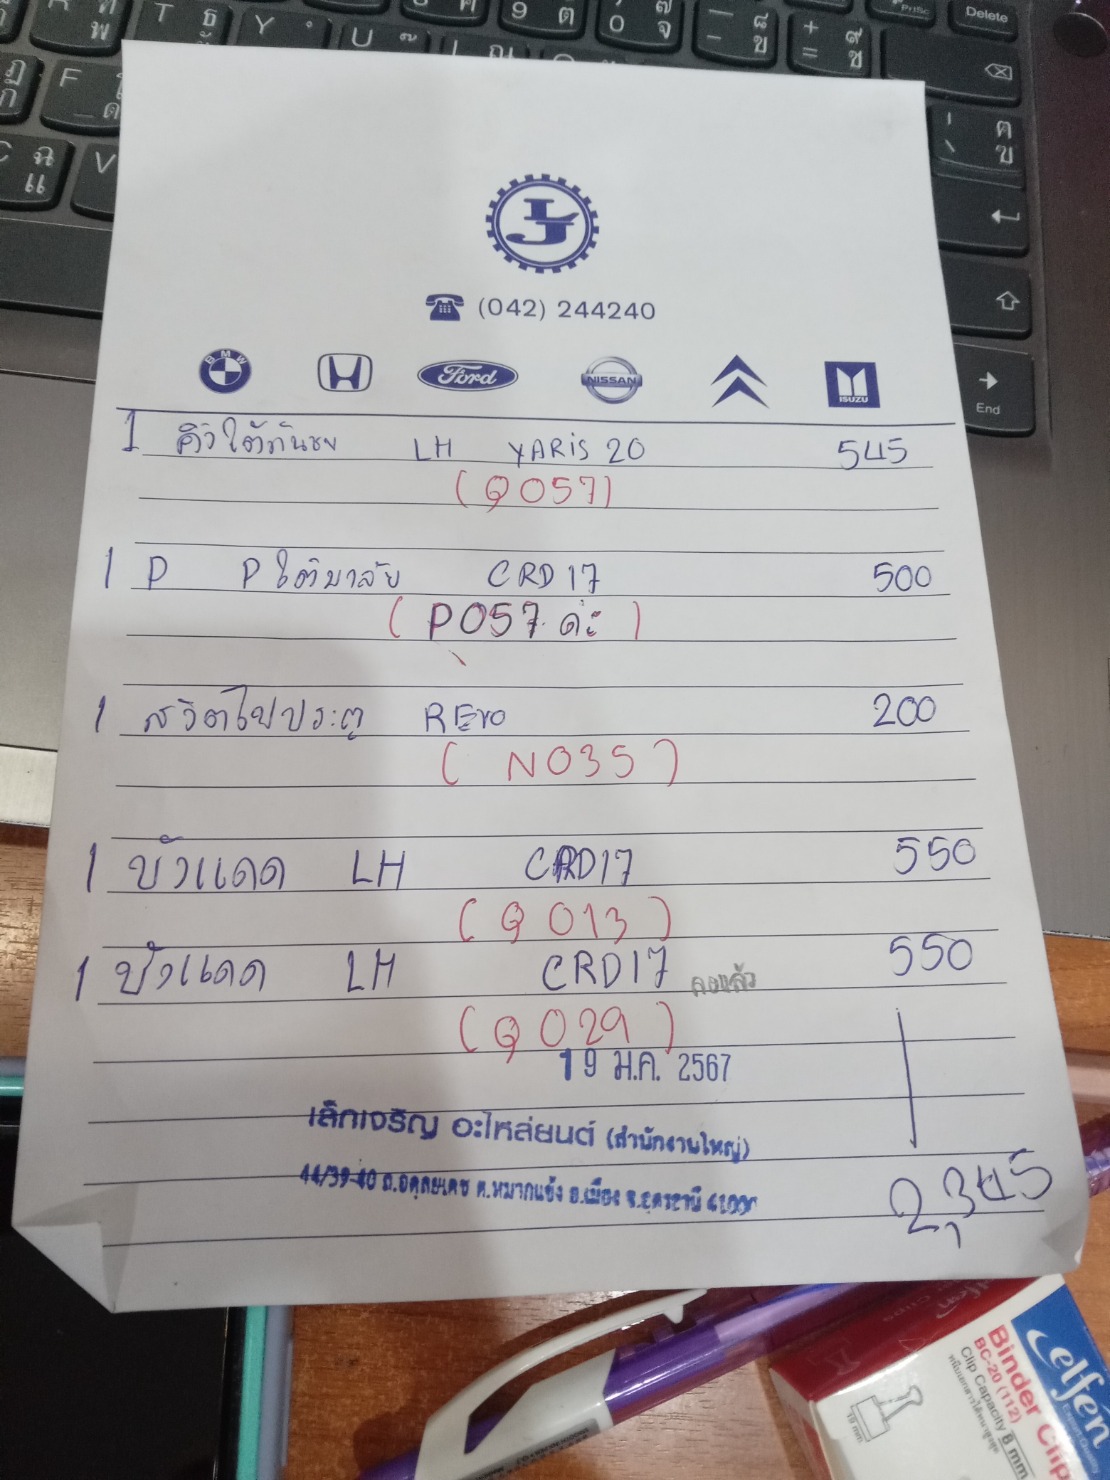 Delete
End
(042) 244240
BMW
Ford
NISSAN
ISUZU
1 คิ้วใต้กันชน LH YARiS 20 545
(Q057)
1 P P ใต้บาลัย CRD17 500
(P057 ค่ะ)
1 สวิตไฟประตู REvo 200
(N035)
1 บังแดด LH CRD17 550
(Q013)
1 บังแดด LH CRD17 550
(Q029)
19 ม.ค. 2567
เล็กเจริญ อะไหล่ยนต์ (สำนักงานใหญ่)
44/39-40 ถ.อดุลยเดช ต.หมากแข้ง อ.เมือง จ.อุดรธานี 41000
2,345
elfen
Binder Clip
BC-20 (112)
Clip Capacity 8 mm
19 mm